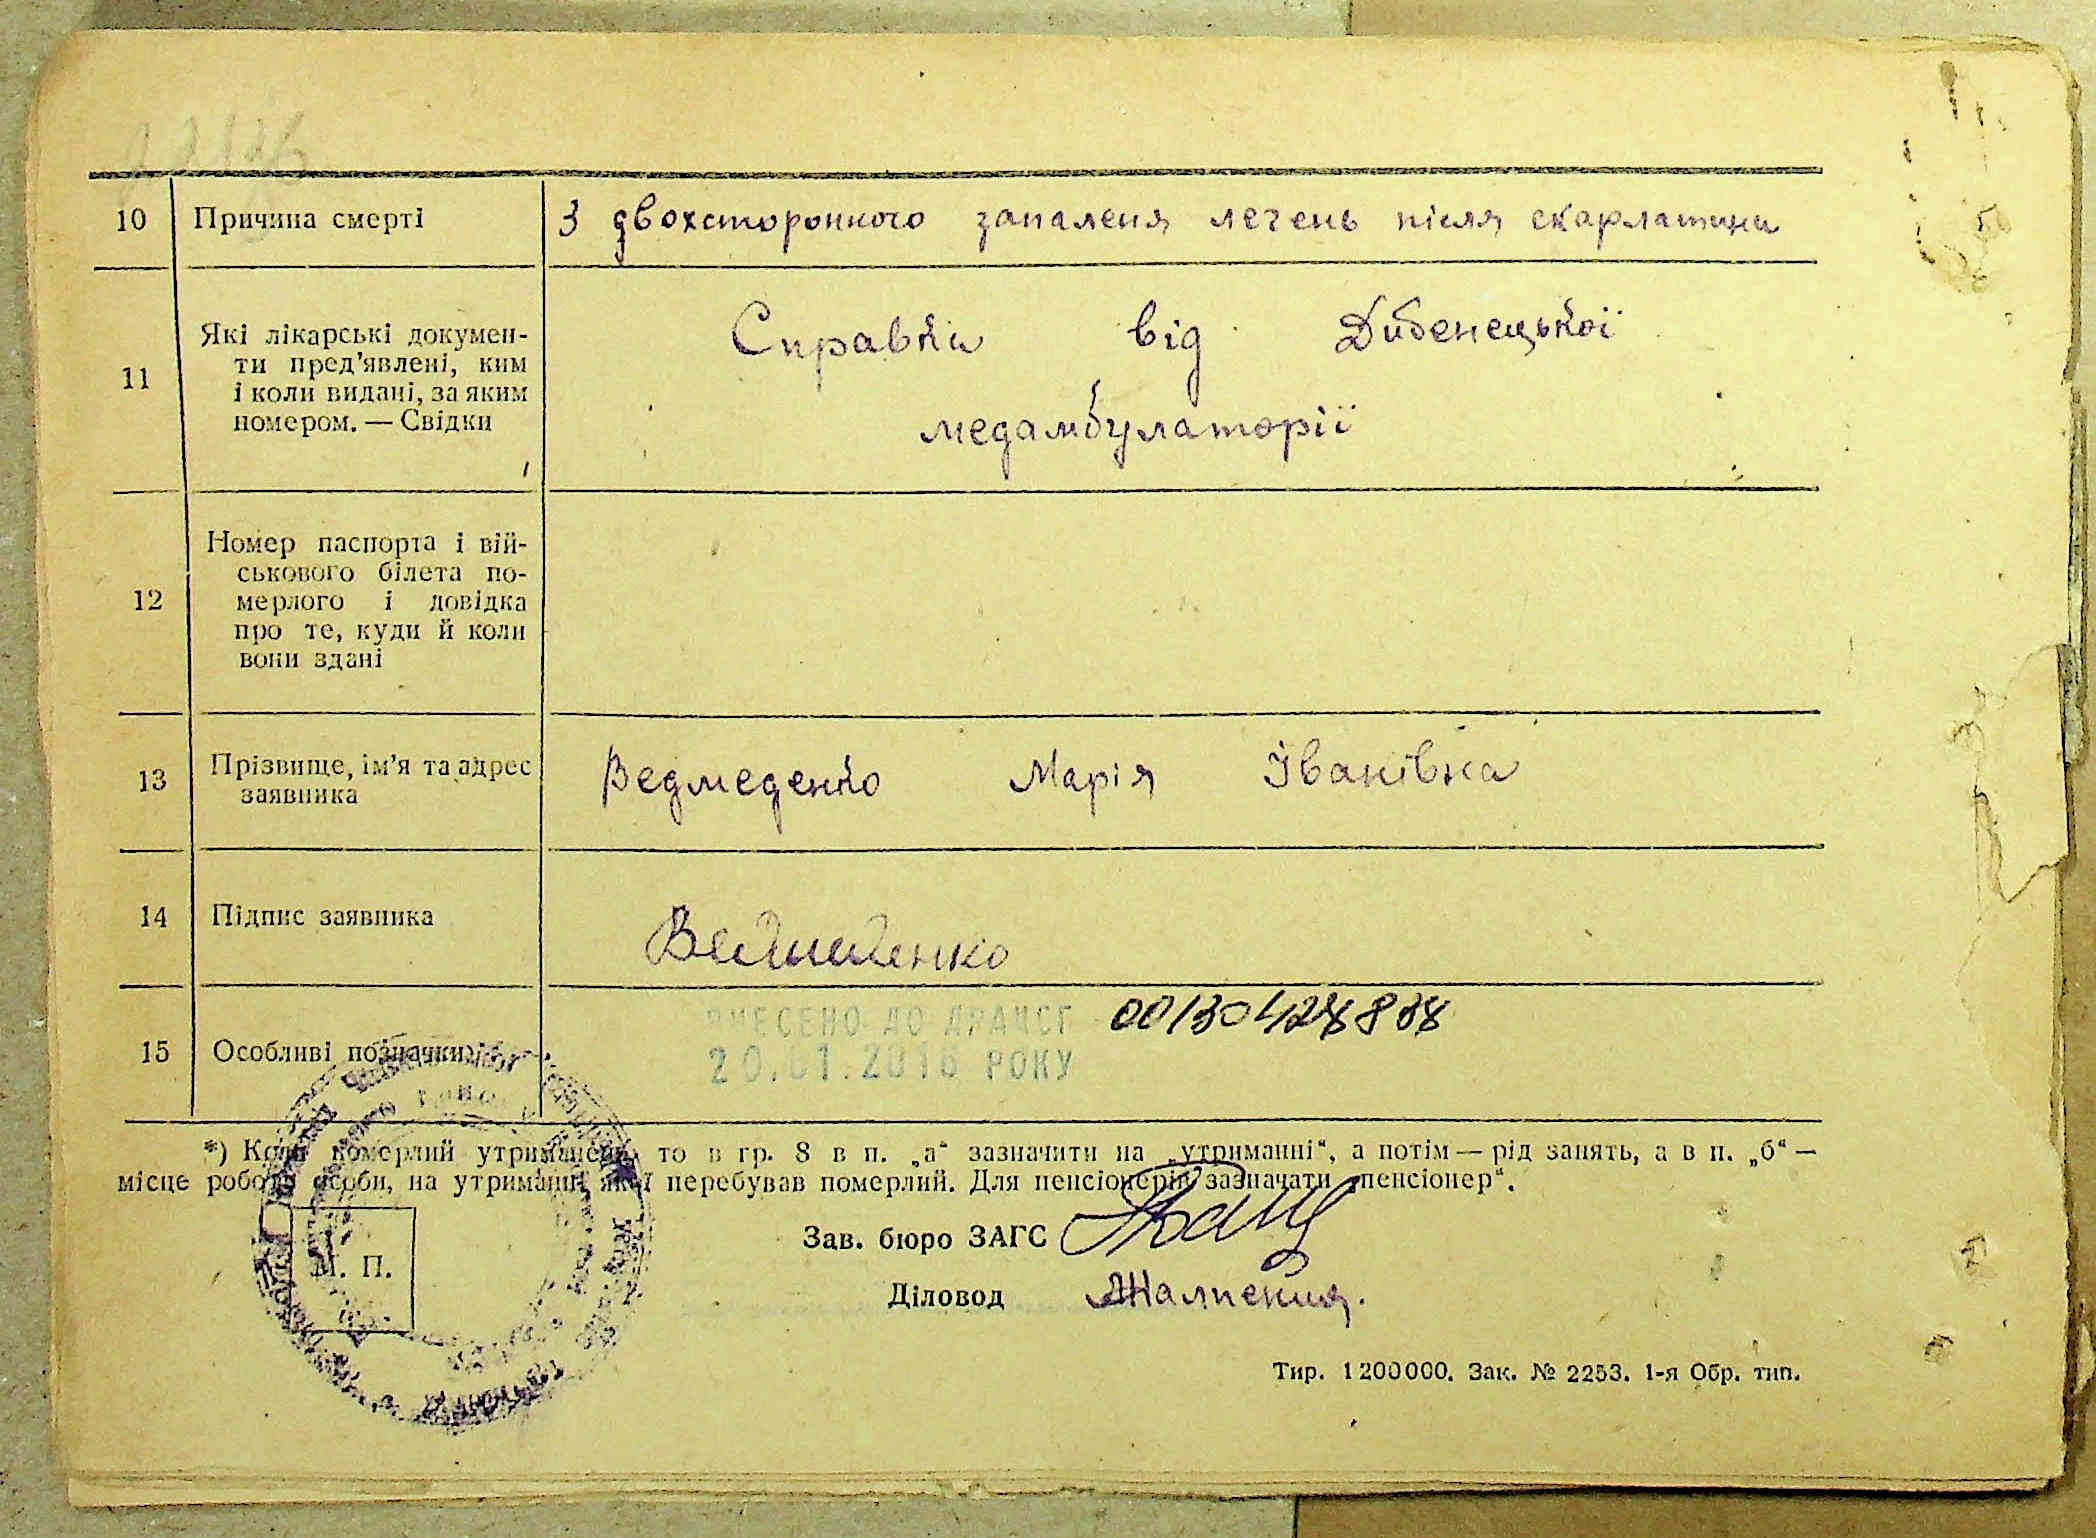 10 Причина смерті З двохсторонного запаленя легень після скарлатини
11 Які лікарські докумен-
ти пред'явлені, ким
і коли видані, за яким
номером. — Свідки
Справка від Дибенецької
медамбулаторії
12 Номер паспорта і вій-
ськового білета по-
мерлого і довідка
про те, куди й коли
вони здані
13 Прізвище, ім'я та адрес
заявника
Ведмеденко Марія Іванівна
14 Підпис заявника
Ведмеденко
15 Особливі позначки
ВНЕСЕНО ДО ДРАЦСГ 00130428838
20.01.2016 РОКУ
*) Коли померлий утриманець, то в гр. 8 в п. „а“ зазначити на „утриманні“, а потім — рід занять, а в п. „б“ —
місце роботи особи, на утриманні якої перебував померлий. Для пенсіонерів зазначати „пенсіонер“.
Зав. бюро ЗАГС
М. П.
Діловод
Тир. 1200000. Зак. № 2253. 1-я Обр. тип.